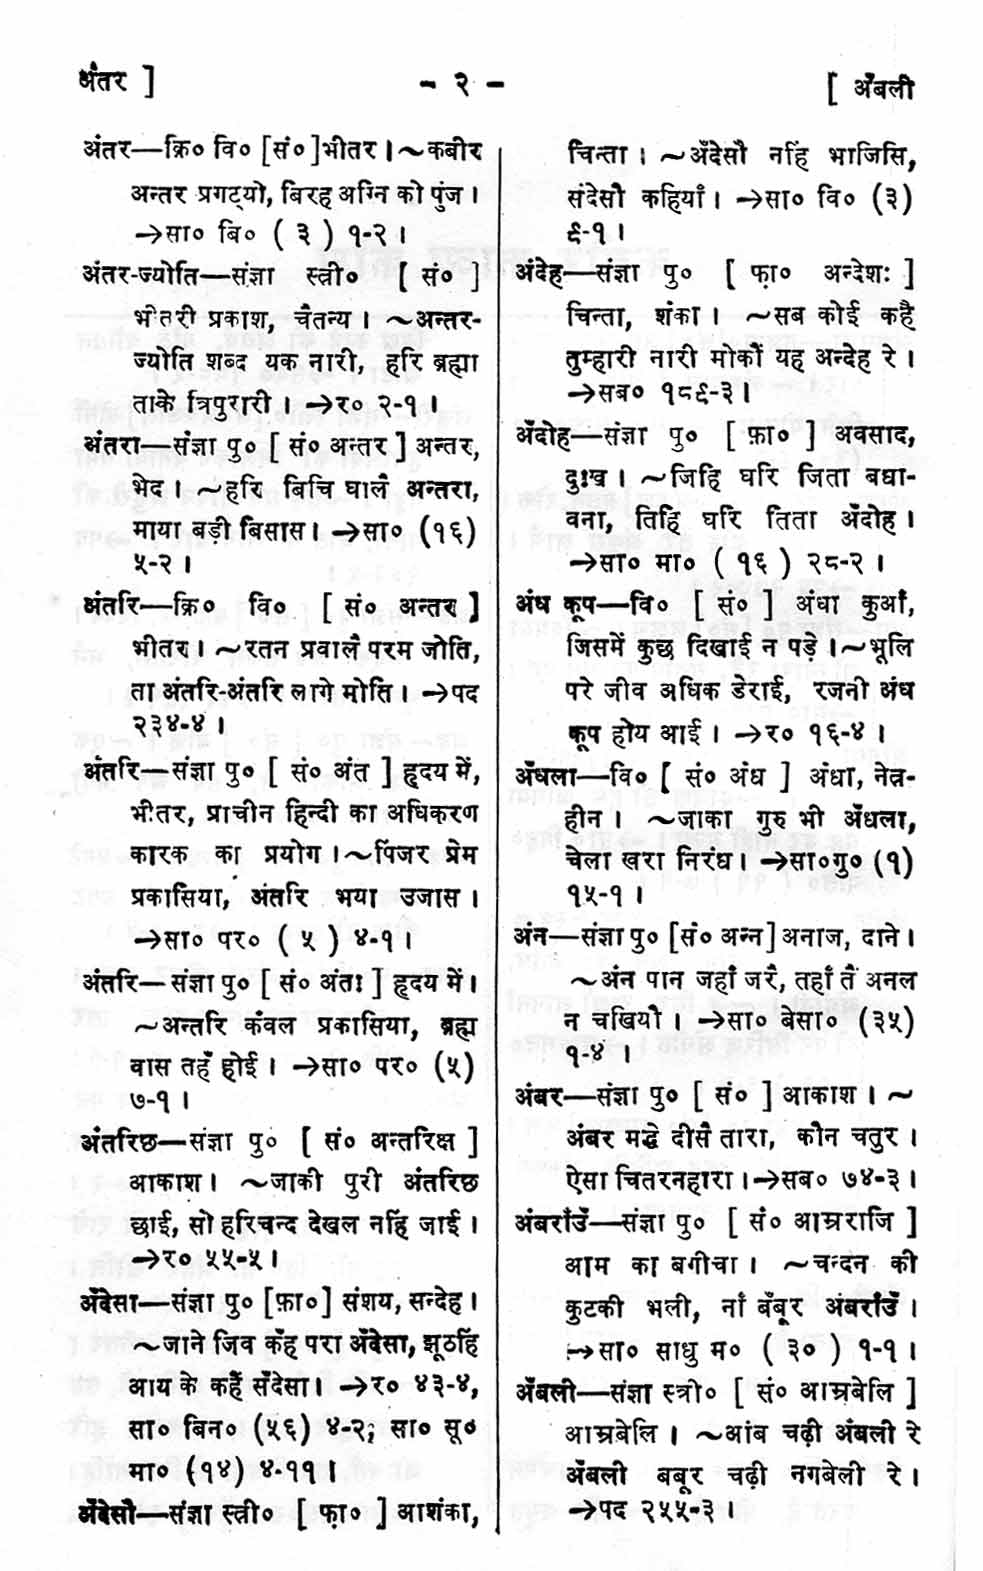 अंतर ]
– २ –
[ अँबली
अंतर—क्रि० वि० [सं०]भीतर।~कबीर
अन्तर प्रगट्यो, बिरह अग्नि को पुंज।
→सा० बि० ( ३ ) १-२।
अंतर-ज्योति—संज्ञा स्त्री० [ सं० ]
भीतरी प्रकाश, चैतन्य। ~अन्तर-
ज्योति शब्द यक नारी, हरि ब्रह्मा
ताके त्रिपुरारी। →र० २-१।
अंतरा—संज्ञा पु० [ सं० अन्तर ] अन्तर,
भेद। ~हरि बिचि घालै अन्तरा,
माया बड़ी बिसास। →सा० (१६)
५-२।
अंतरि—क्रि० वि० [ सं० अन्तर ]
भीतर। ~रतन प्रवालै परम जोति,
ता अंतरि-अंतरि लागे मोति। →पद
२३४-४।
अंतरि—संज्ञा पु० [ सं० अंत ] हृदय में,
भीतर, प्राचीन हिन्दी का अधिकरण
कारक का प्रयोग।~पिंजर प्रेम
प्रकासिया, अंतरि भया उजास।
→सा० पर० ( ५ ) ४-१।
अंतरि—संज्ञा पु० [ सं० अंतः ] हृदय में।
~अन्तरि कंवल प्रकासिया, ब्रह्म
वास तहँ होई। →सा० पर० (५)
७-१।
अंतरिछ—संज्ञा पु० [ सं० अन्तरिक्ष ]
आकाश। ~जाकी पुरी अंतरिछ
छाई, सो हरिचन्द देखल नहिं जाई।
→र० ५५-५।
अँदेसा—संज्ञा पु० [फ़ा०] संशय, सन्देह।
~जाने जिव कँह परा अँदेसा, झूठहिं
आय के कहैं सँदेसा। →र० ४३-४,
सा० बिन० (५६) ४-२; सा० सू०
मा० (१४) ४-११।
अँदेसौ—संज्ञा स्त्री० [ फ़ा० ] आशंका,
चिन्ता। ~अँदेसौ नहिं भाजिसि,
संदेसौ कहियाँ। →सा० वि० (३)
९-१।
अंदेह—संज्ञा पु० [ फ़ा० अन्देशः ]
चिन्ता, शंका। ~सब कोई कहै
तुम्हारी नारी मोकौं यह अन्देह रे।
→सब० १८९-३।
अँदोह—संज्ञा पु० [ फ़ा० ] अवसाद,
दुःख। ~जिहि घरि जिता बधा-
वना, तिहिं घरि तिता अँदोह।
→सा० मा० ( १६ ) २८-२।
अंध कूप—वि० [ सं० ] अंधा कुआँ,
जिसमें कुछ दिखाई न पड़े।~भूलि
परे जीव अधिक डेराई, रजनी अंध
कूप होय आई। →र० १६-४।
अँधला—वि० [ सं० अंध ] अंधा, नेत्र-
हीन। ~जाका गुरु भी अँधला,
चेला खरा निरंध। →सा०गु० (१)
१५-१।
अंन—संज्ञा पु० [सं० अन्न] अनाज, दाने।
~अंन पान जहाँ जरै, तहाँ तैं अनल
न चखियौ। →सा० बेसा० (३५)
१-४।
अंबर—संज्ञा पु० [ सं० ] आकाश। ~
अंबर मद्धे दीसै तारा, कौन चतुर।
ऐसा चितरनहारा।→सब० ७४-३।
अंबराँउँ—संज्ञा पु० [ सं० आम्रराजि ]
आम का बगीचा। ~चन्दन की
कुटकी भली, नाँ बँबूर अंबराँउँ।
→सा० साधु म० ( ३० ) १-१।
अँबली—संज्ञा स्त्री० [ सं० आम्रबेलि ]
आम्रबेलि। ~आंब चढ़ी अँबली रे
अँबली बबूर चढ़ी नगबेली रे।
→पद २५५-३।